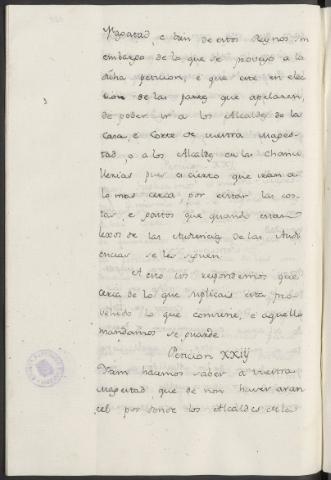 Magestad, e bien de estos Reynos sin
embargo de lo que se proveyo a la
dicha peticion, e que este en elec
cion de las partes que apelaren,
de poder ir a los Alcaldes de la
Casa, e Corte de vuestra Mages-
tad, o a los Alcaldes en las Chanci
llerias pues es cierto que iran a
lo mas cerca, por evitar las cos-
tas, e gastos que quando estan
lexos de las Audiencias de las Audi
encias se les siguen
A esto vos respondemos que
cerca de lo que suplicais esta pro-
vehido lo que conviene, e aquello
mandamos se guarde
Peticion XXIIJ
Ytem hacemos saber a vuestra
Magestad, que de non haver aran
cel por donde los Alcaldes de la